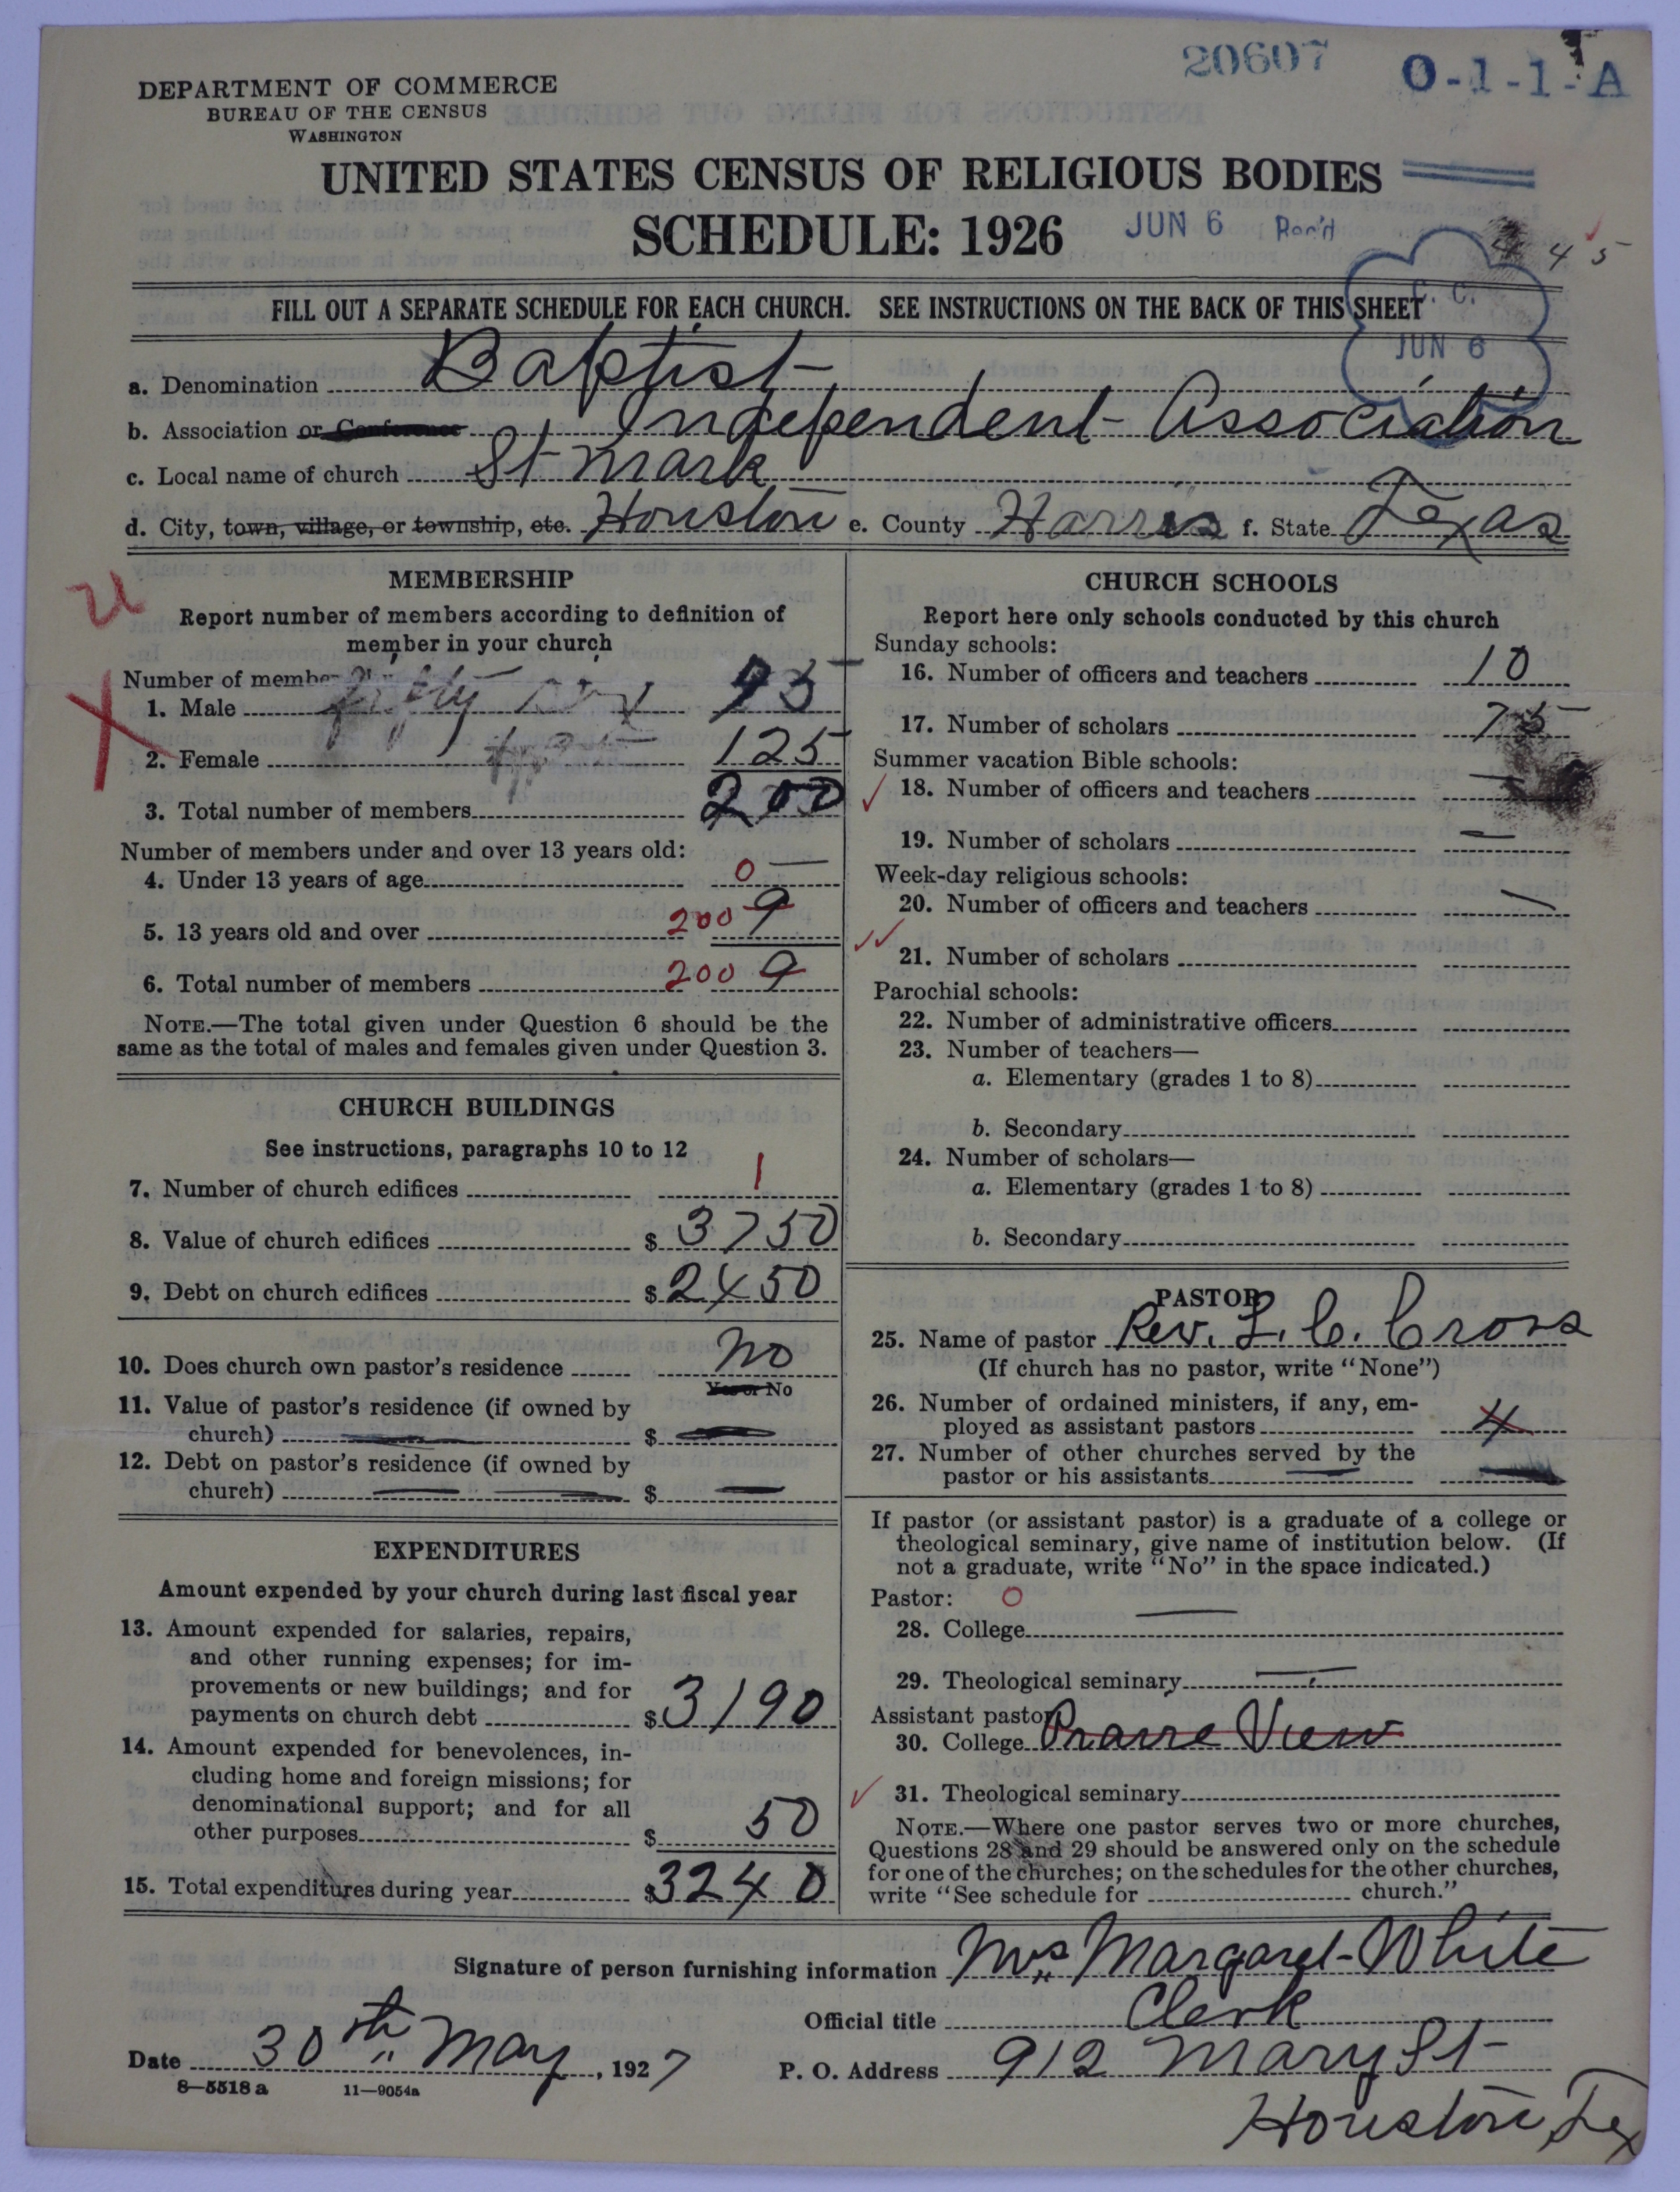 20607
O-1-1-A
DEPARTMENT OF COMMERCE
BUREAU OF THE CENSUS
WASHINGTON
UNITED STATES CENSUS OF RELIGIOUS BODIES
SCHEDULE: 1926
JUN 6 Rec'd
4 5
FILL OUT A SEPARATE SCHEDULE FOR EACH CHURCH. SEE INSTRUCTIONS ON THE BACK OF THIS SHEET
C. C.
JUN 6
a. Denomination Baptist
b. Association or Conference Independent Association
c. Local name of church St Mark
d. City, town, village, or township, etc. Houston e. County Harris f. State Texas
MEMBERSHIP
Report number of members according to definition of
member in your church
Number of members
1. Male fifty 75
2. Female 125
3. Total number of members 200
Number of members under and over 13 years old:
4. Under 13 years of age 0 —
5. 13 years old and over 200 9
6. Total number of members 200 9
NOTE.—The total given under Question 6 should be the
same as the total of males and females given under Question 3.
CHURCH BUILDINGS
See instructions, paragraphs 10 to 12
7. Number of church edifices 1
8. Value of church edifices $ 3750
9. Debt on church edifices $ 2450
10. Does church own pastor's residence No
Yes or No
11. Value of pastor's residence (if owned by
church) — $ —
12. Debt on pastor's residence (if owned by
church) — — $ —
EXPENDITURES
Amount expended by your church during last fiscal year
13. Amount expended for salaries, repairs,
and other running expenses; for im-
provements or new buildings; and for
payments on church debt $ 3190
14. Amount expended for benevolences, in-
cluding home and foreign missions; for
denominational support; and for all
other purposes $ 50
15. Total expenditures during year $ 3240
CHURCH SCHOOLS
Report here only schools conducted by this church
Sunday schools:
16. Number of officers and teachers 10
17. Number of scholars 75
Summer vacation Bible schools:
18. Number of officers and teachers —
19. Number of scholars —
Week-day religious schools:
20. Number of officers and teachers —
21. Number of scholars
Parochial schools:
22. Number of administrative officers
23. Number of teachers—
a. Elementary (grades 1 to 8)
b. Secondary
24. Number of scholars—
a. Elementary (grades 1 to 8)
b. Secondary
PASTOR
25. Name of pastor Rev. L. C. Cross
(If church has no pastor, write "None")
26. Number of ordained ministers, if any, em-
ployed as assistant pastors 4
27. Number of other churches served by the
pastor or his assistants — —
If pastor (or assistant pastor) is a graduate of a college or
theological seminary, give name of institution below. (If
not a graduate, write "No" in the space indicated.)
Pastor: O
28. College —
29. Theological seminary —
Assistant pastor
30. College Prarre View
31. Theological seminary
NOTE.—Where one pastor serves two or more churches,
Questions 28 and 29 should be answered only on the schedule
for one of the churches; on the schedules for the other churches,
write "See schedule for church."
Signature of person furnishing information Mrs Margaret White
Official title Clerk
Date 30th May, 1927 P. O. Address 912 Mary St
8—5518 a 11—9054a
Houston, Tex